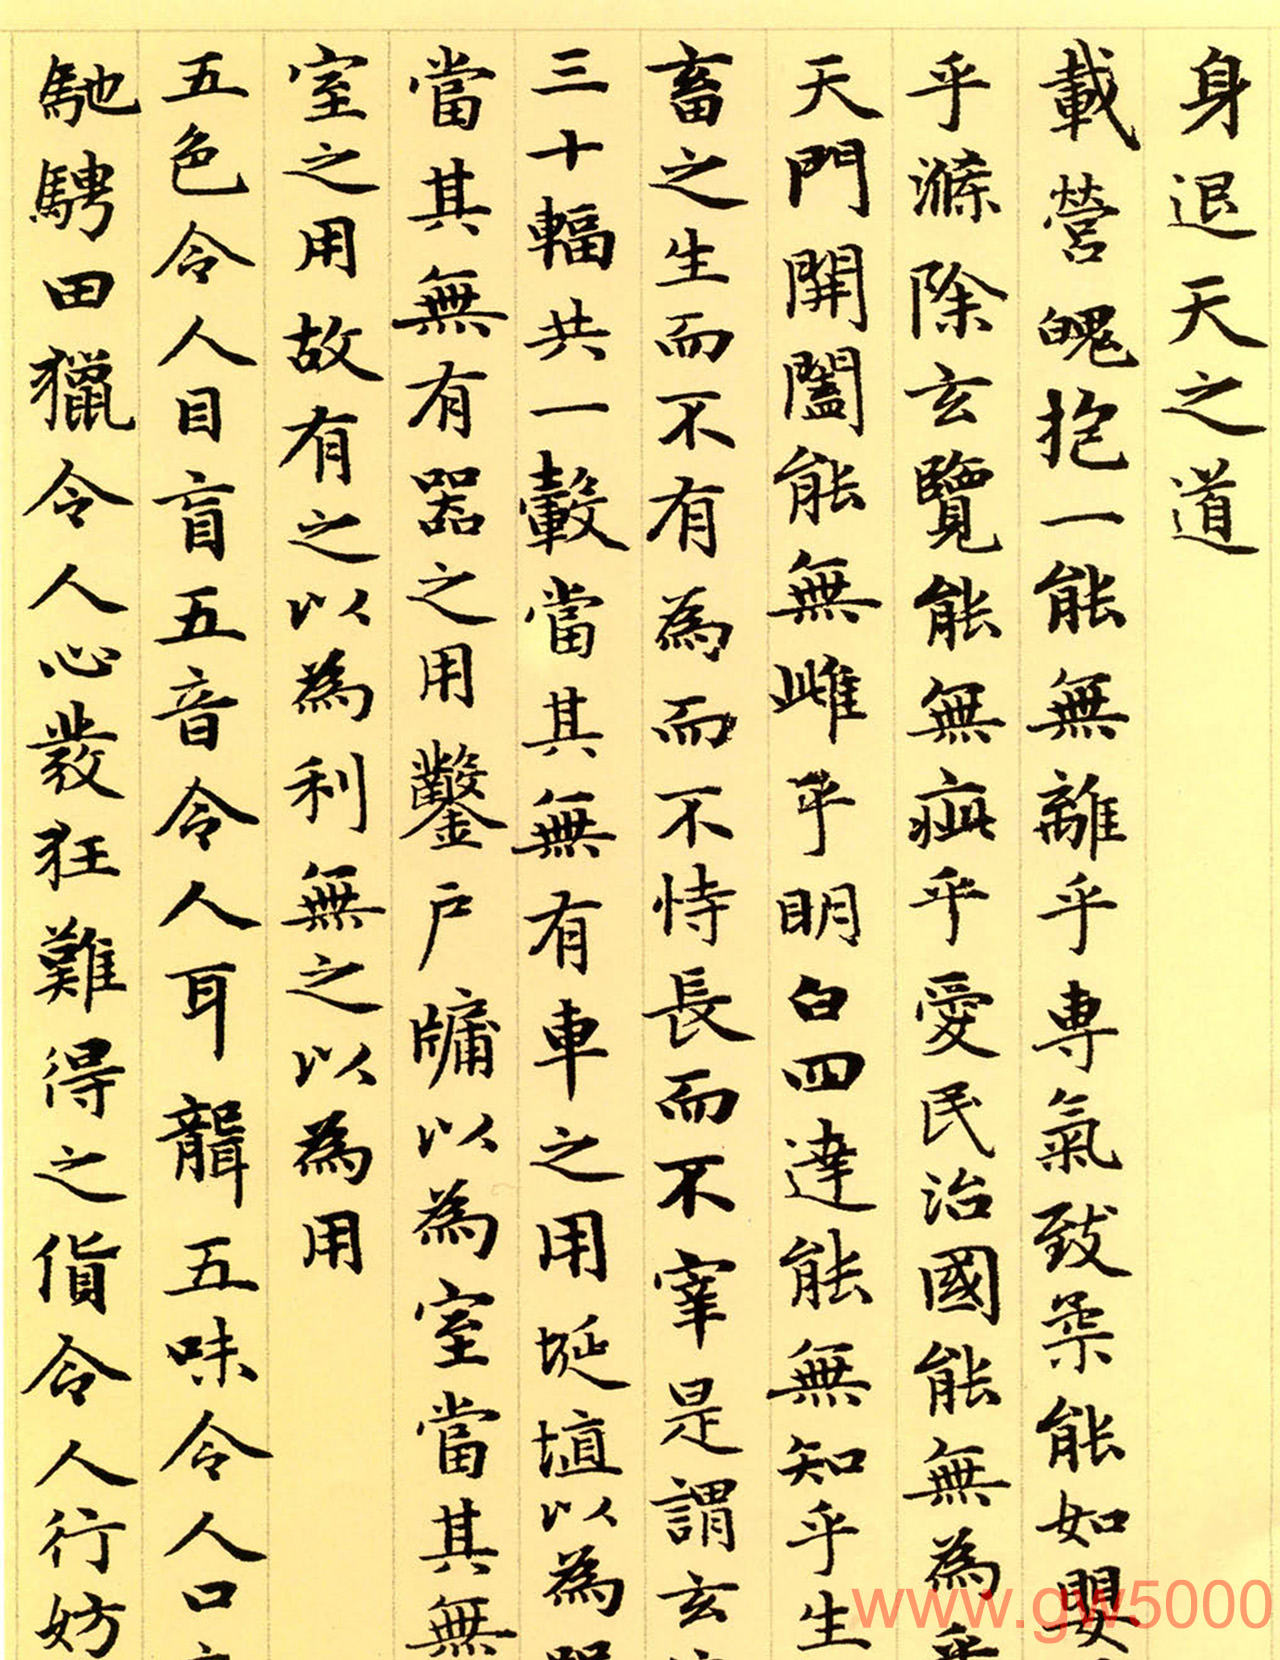 身退天之道
載營魄抱一能無離乎専氣致柔能如嬰
乎滌除玄覽能無疵乎愛民治國能無為乎
天門開闔能無雌乎明白四達能無知乎生
畜之生而不有為而不恃長而不宰是謂玄
三十輻共一轂當其無有車之用埏埴以為器
當其無有器之用鑿户牖以為室當其無
室之用故有之以為利無之以為用
五色令人目盲五音令人耳聾五味令人口
馳騁田獵令人心發狂難得之貨令人行妨
www.gw5000